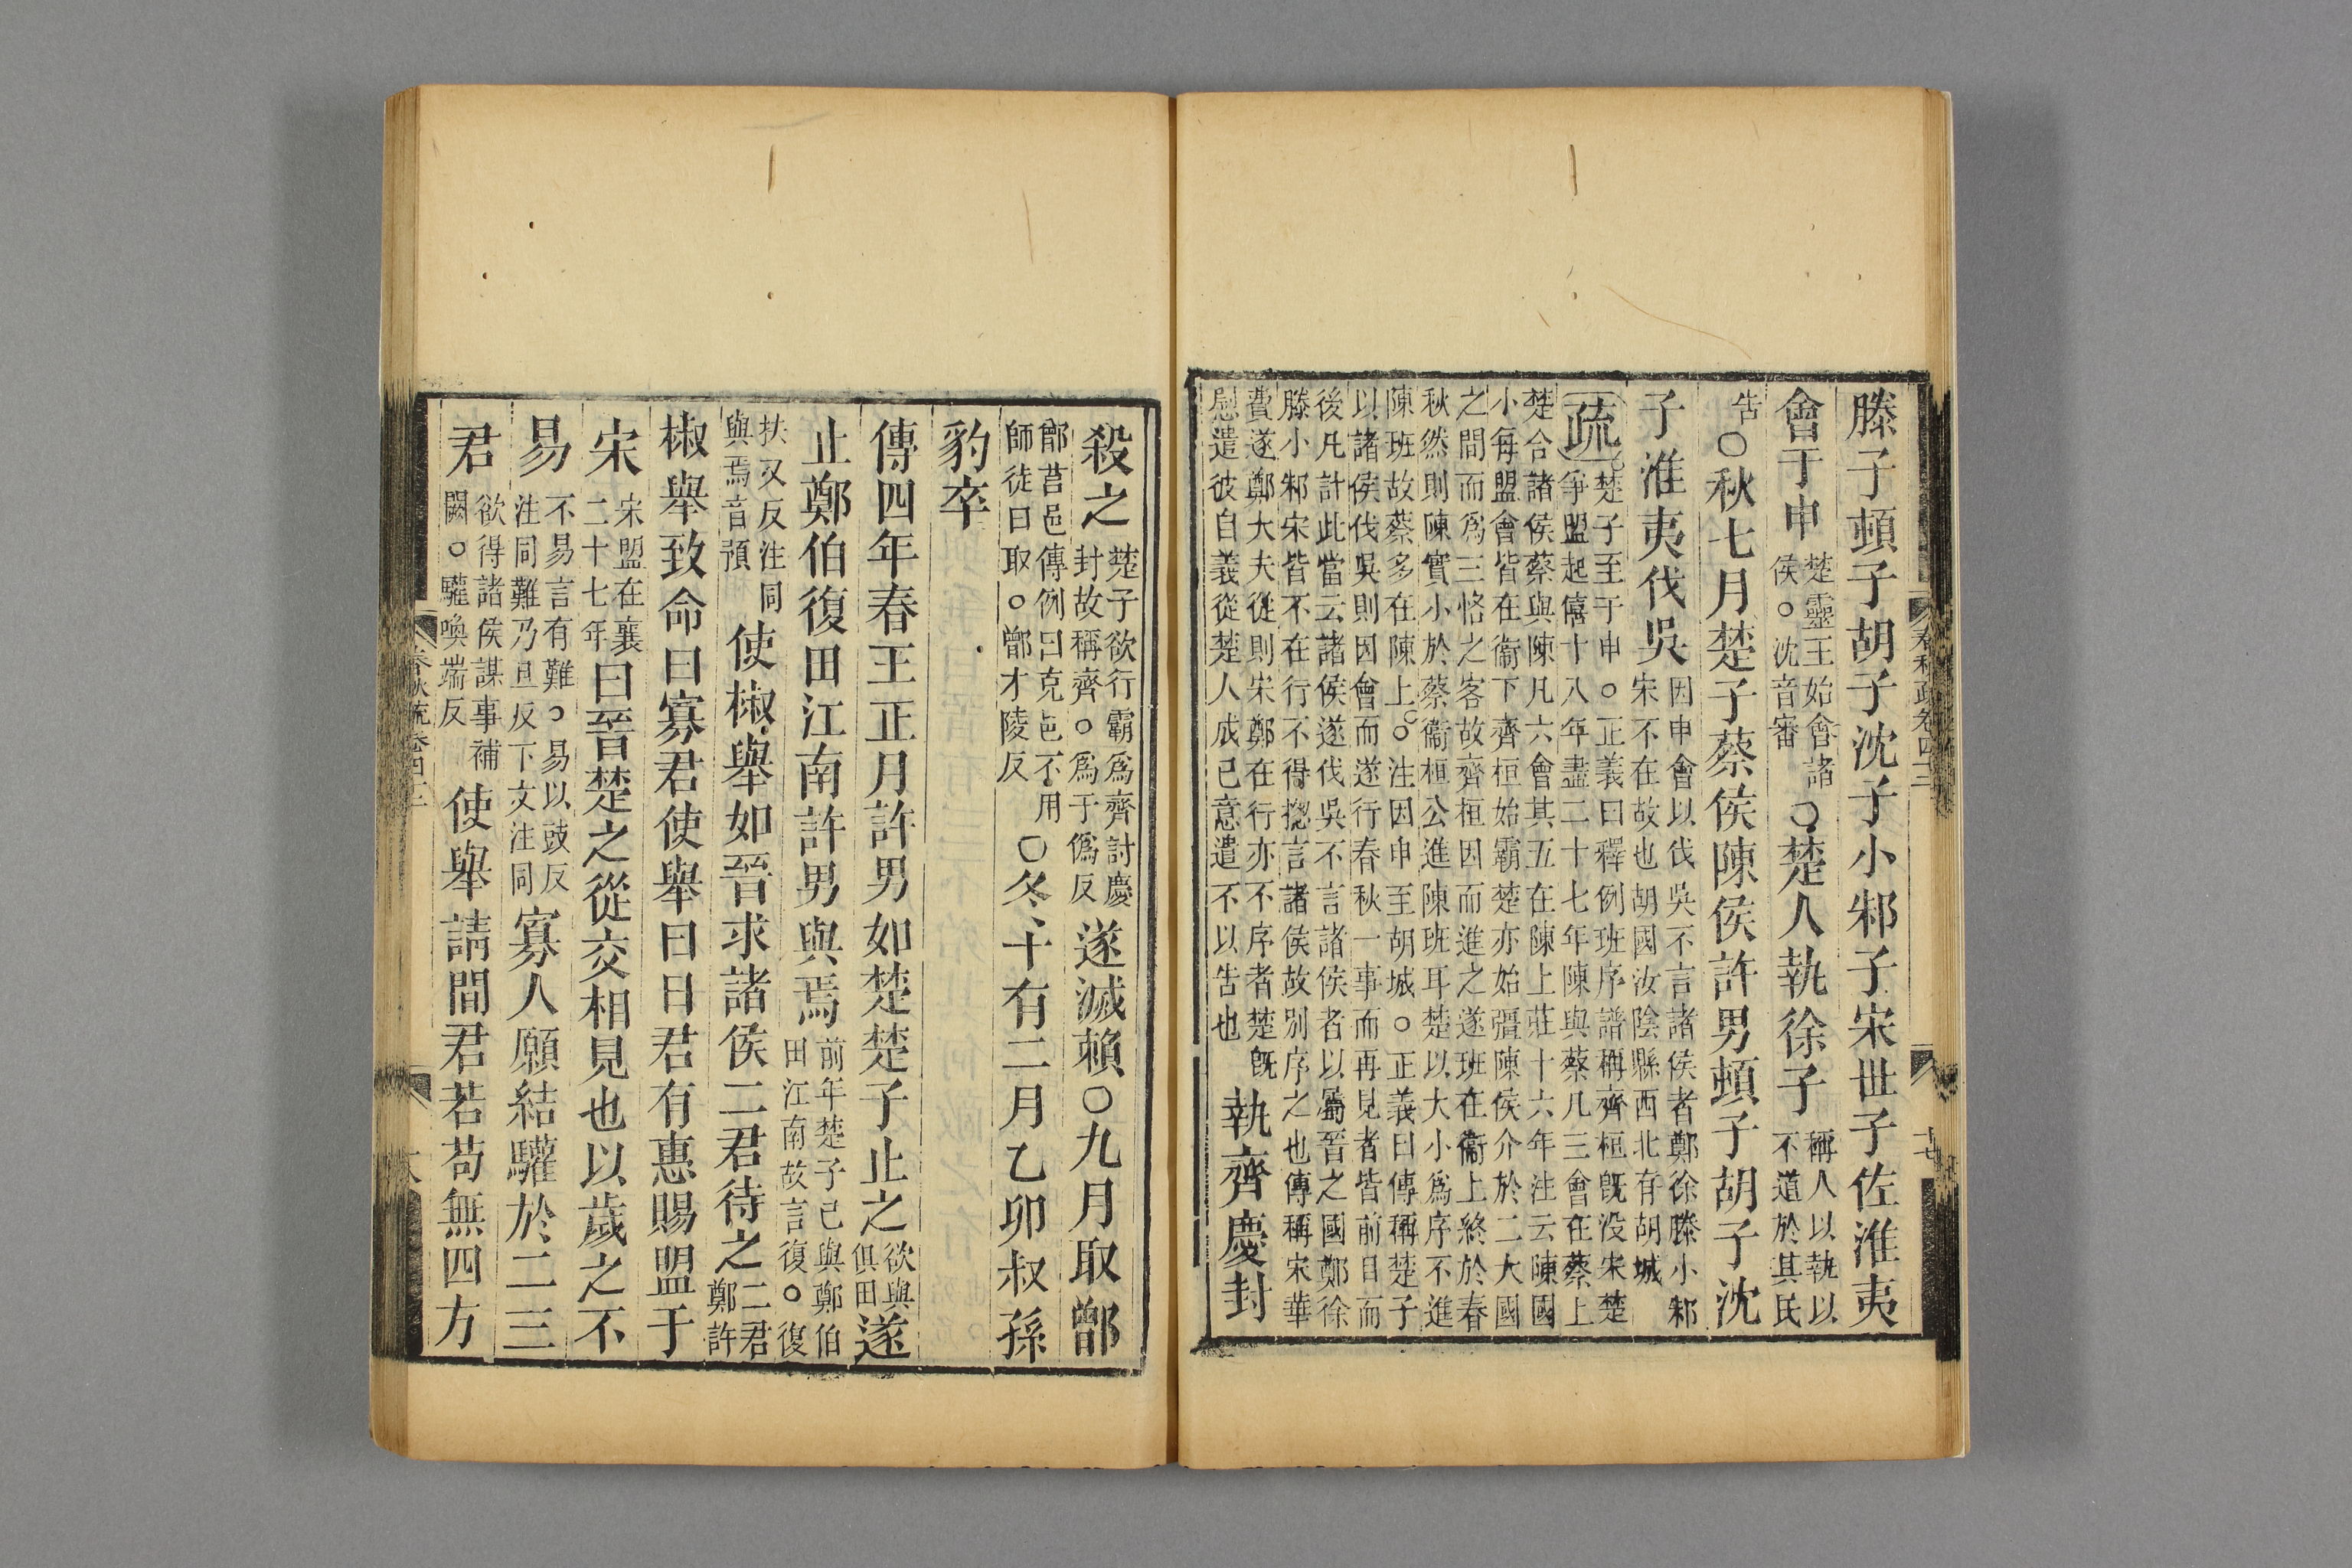 滕子頓子胡子沈子小邾子宋世子佐淮夷
會于申楚靈王始會諸侯。沈音審○楚人執徐子稱人以執以不道於其民
告○秋七月楚子蔡侯陳侯許男頓子胡子沈
子淮夷伐吳因申會以伐吳不言諸侯者鄭徐滕小邾宋不在故也胡國汝陰縣西北有胡城
疏楚子至于申。正義曰釋例班序譜稱齊桓旣没宋楚
爭盟起僖十八年盡二十七年陳與蔡凡三會在蔡上
楚合諸侯蔡與陳凡六會其五在陳上莊十六年注云陳國
小每盟會皆在衞下齊桓始霸楚亦始彊陳侯介於二大國
之間而爲三恪之客故齊桓因而進之遂班在衞上終於春
秋然則陳實小於蔡衞桓公進陳班耳楚以大小爲序不進
陳班故蔡多在陳上。注因申至胡城。正義曰傳稱楚子
以諸侯伐吳則因會而遂行春秋一事而再見者皆前目而
後凡計此當云諸侯遂伐吳不言諸侯者以屬晉之國鄭徐
滕小邾宋皆不在行不得揔言諸侯故別序之也傳稱宋華
費遂鄭大夫從則宋鄭在行亦不序者楚旣
慰遣彼自義從楚人成已意遣不以告也執齊慶封
殺之楚子欲行霸爲齊討慶封故稱齊。爲于僞反遂滅賴○九月取鄫
鄫莒邑傳例曰克邑不用師徒曰取。鄫才陵反○冬十有二月乙卯叔孫
豹卒
傳四年春王正月許男如楚楚子止之欲與俱田遂
止鄭伯復田江南許男與焉前年楚子已與鄭伯田江南故言復。復
扶又反注同與焉音預使椒舉如晉求諸侯二君待之二君鄭許
椒舉致命曰寡君使舉曰日君有惠賜盟于
宋宋盟在襄二十七年曰晉楚之從交相見也以歲之不
易不易言有難。易以豉反注同難乃旦反下文注同寡人願結驩於二三
君欲得諸侯謀事補闕。驩喚端反使舉請間君若苟無四方
春秋疏卷四十二
春秋疏卷四十二